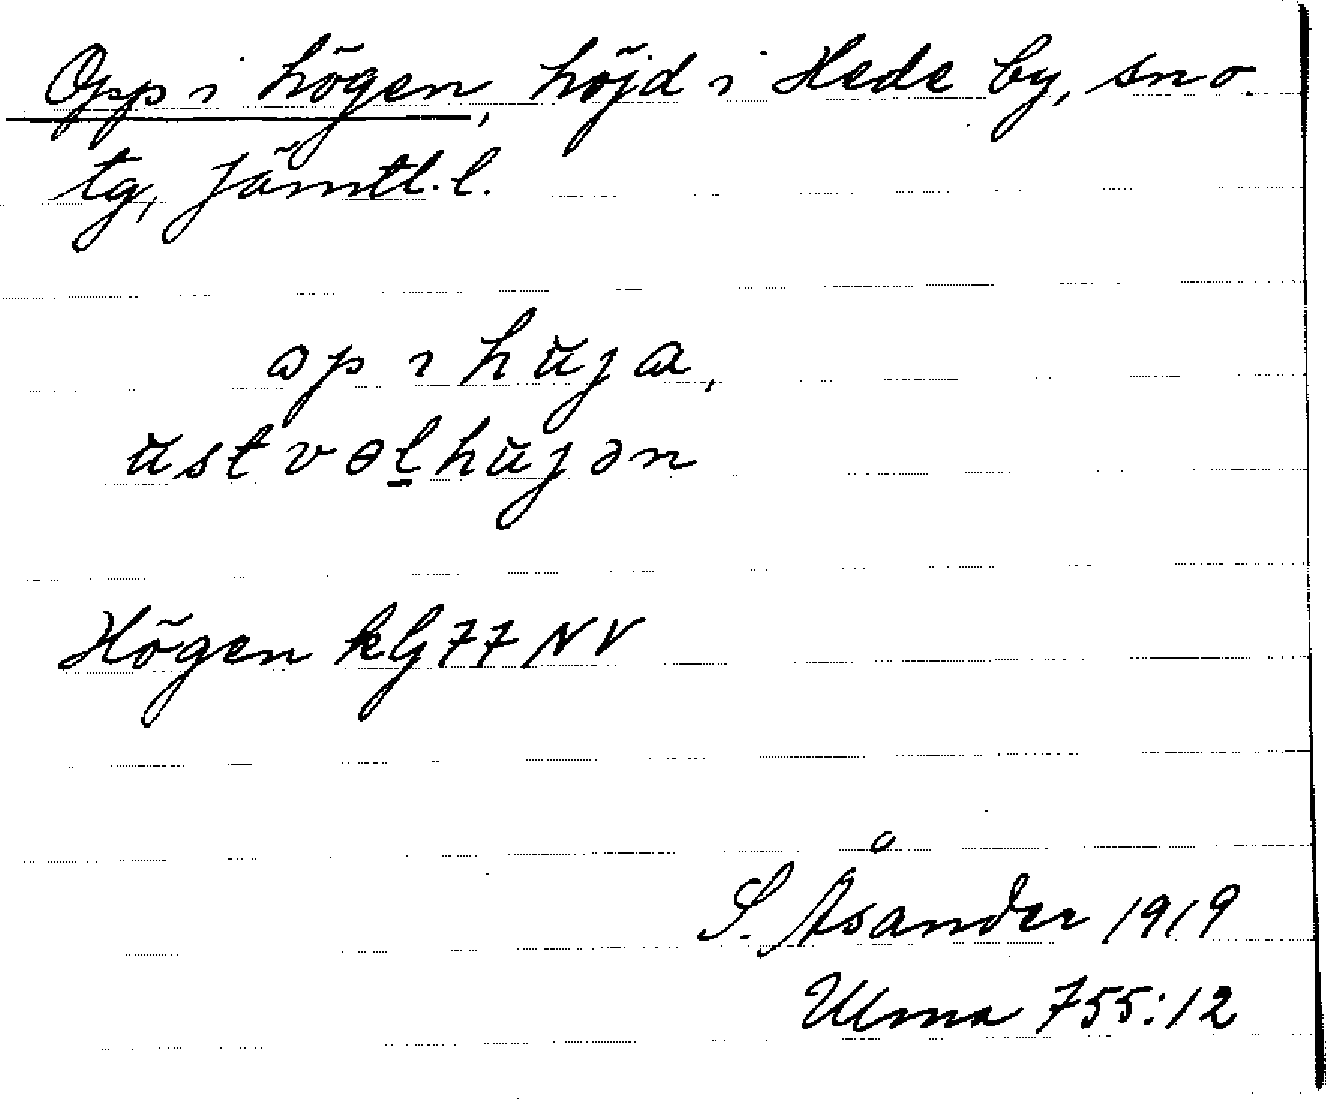 Opp i högen, höjd i Hede by, sn o.
tg, Jämtl. l.
op i hüja,
üstvəlhüjən
Högen kG 77 NV
S. Åsander 1919
Ulma 755:12